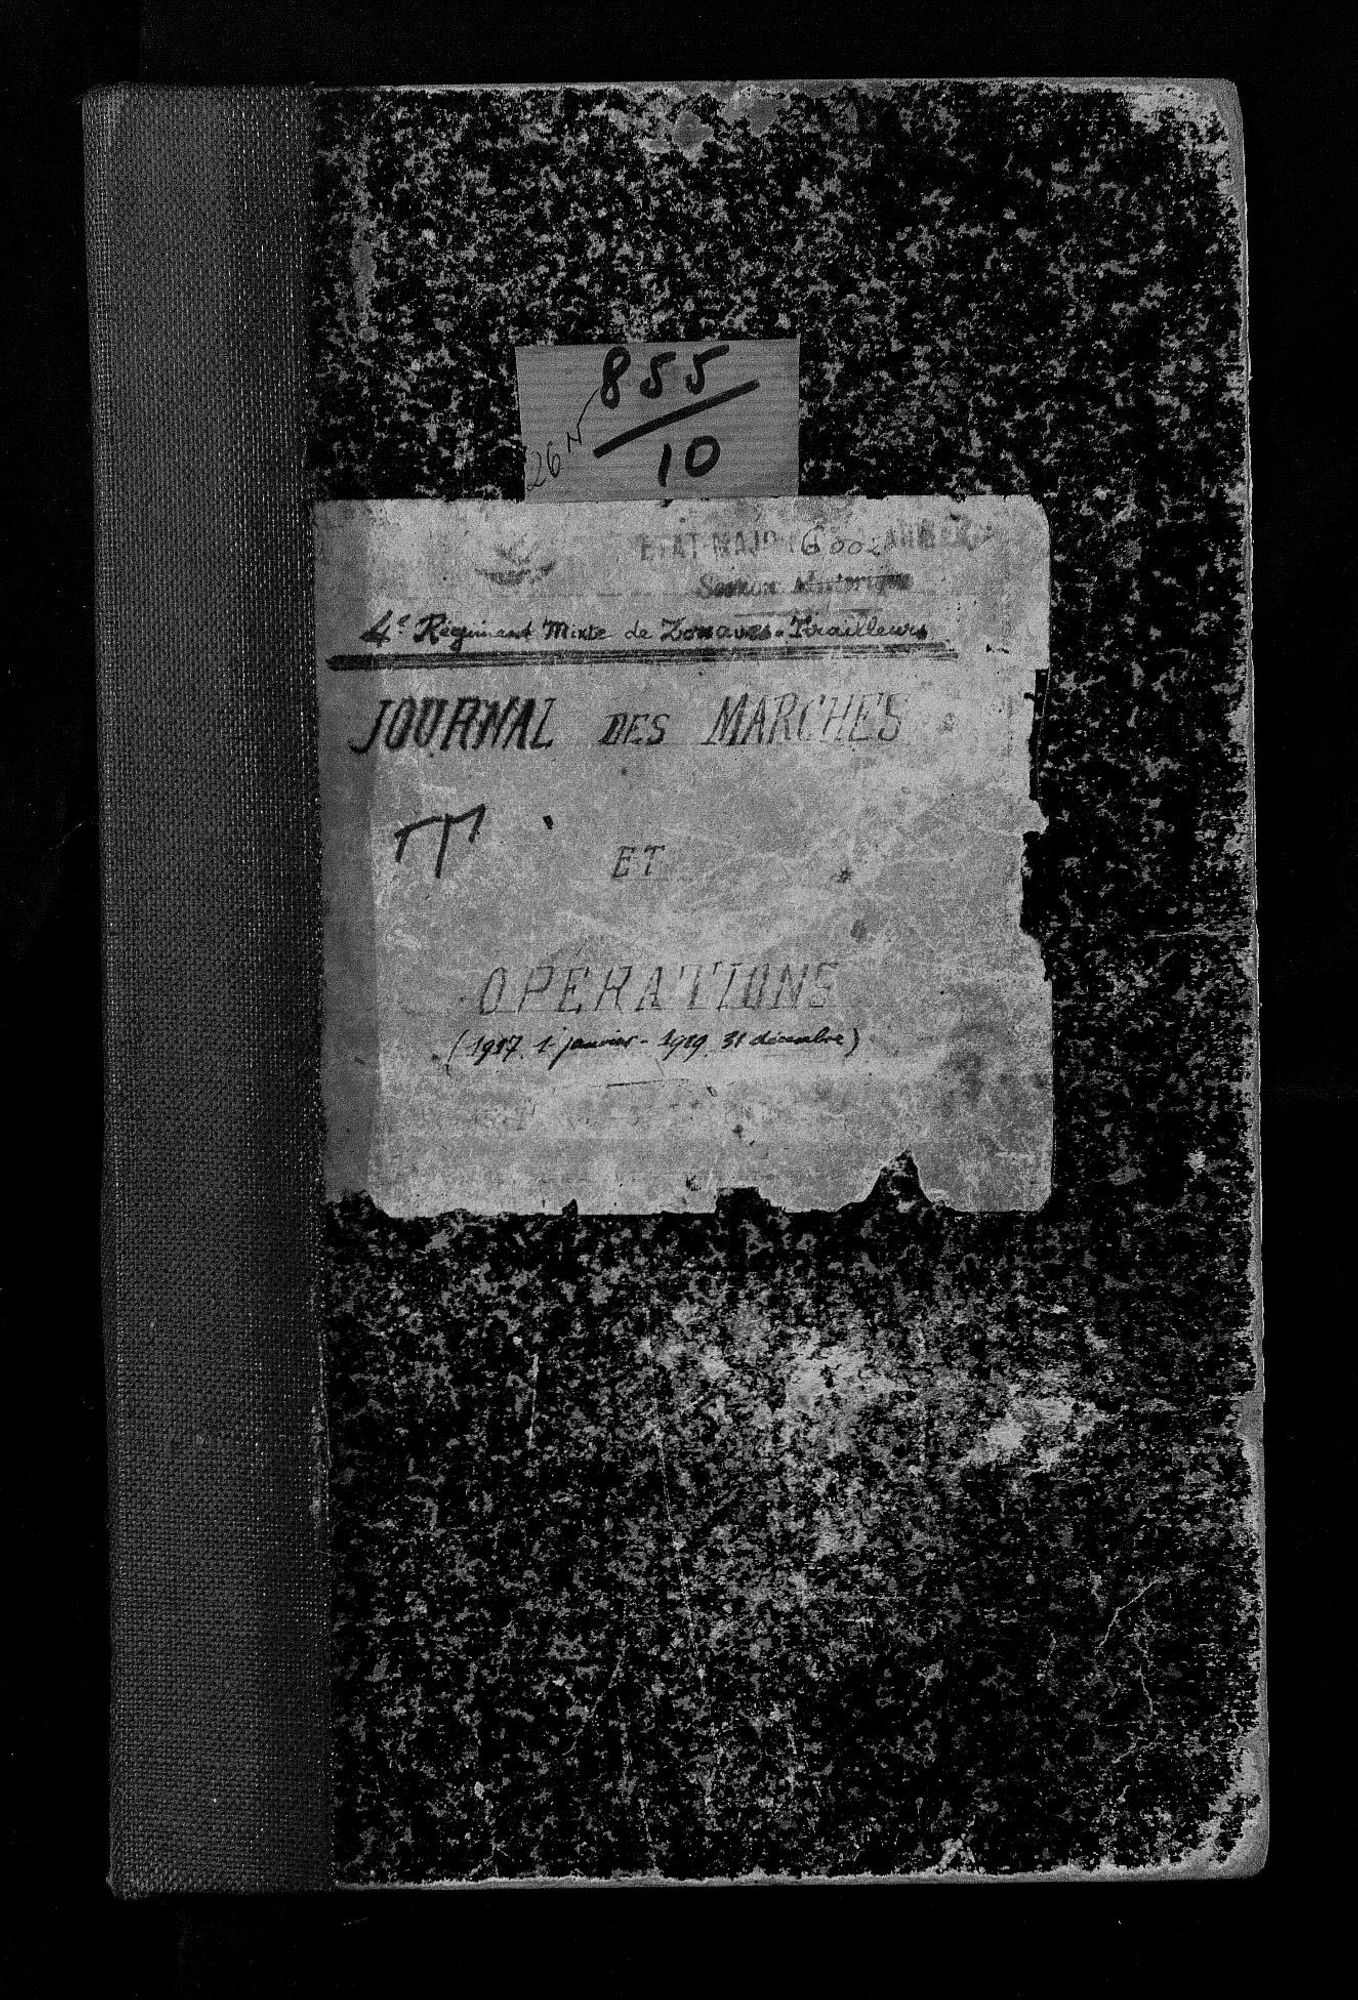 855
26 N
10
ETAT-MAJOR 6002 ARMÉE
Section Historique
4e Régiment Mixte de Zouaves-Tirailleurs
JOURNAL DES MARCHES
ET
OPÉRATIONS
(1917. 1. janvier - 1919. 31 décembre)